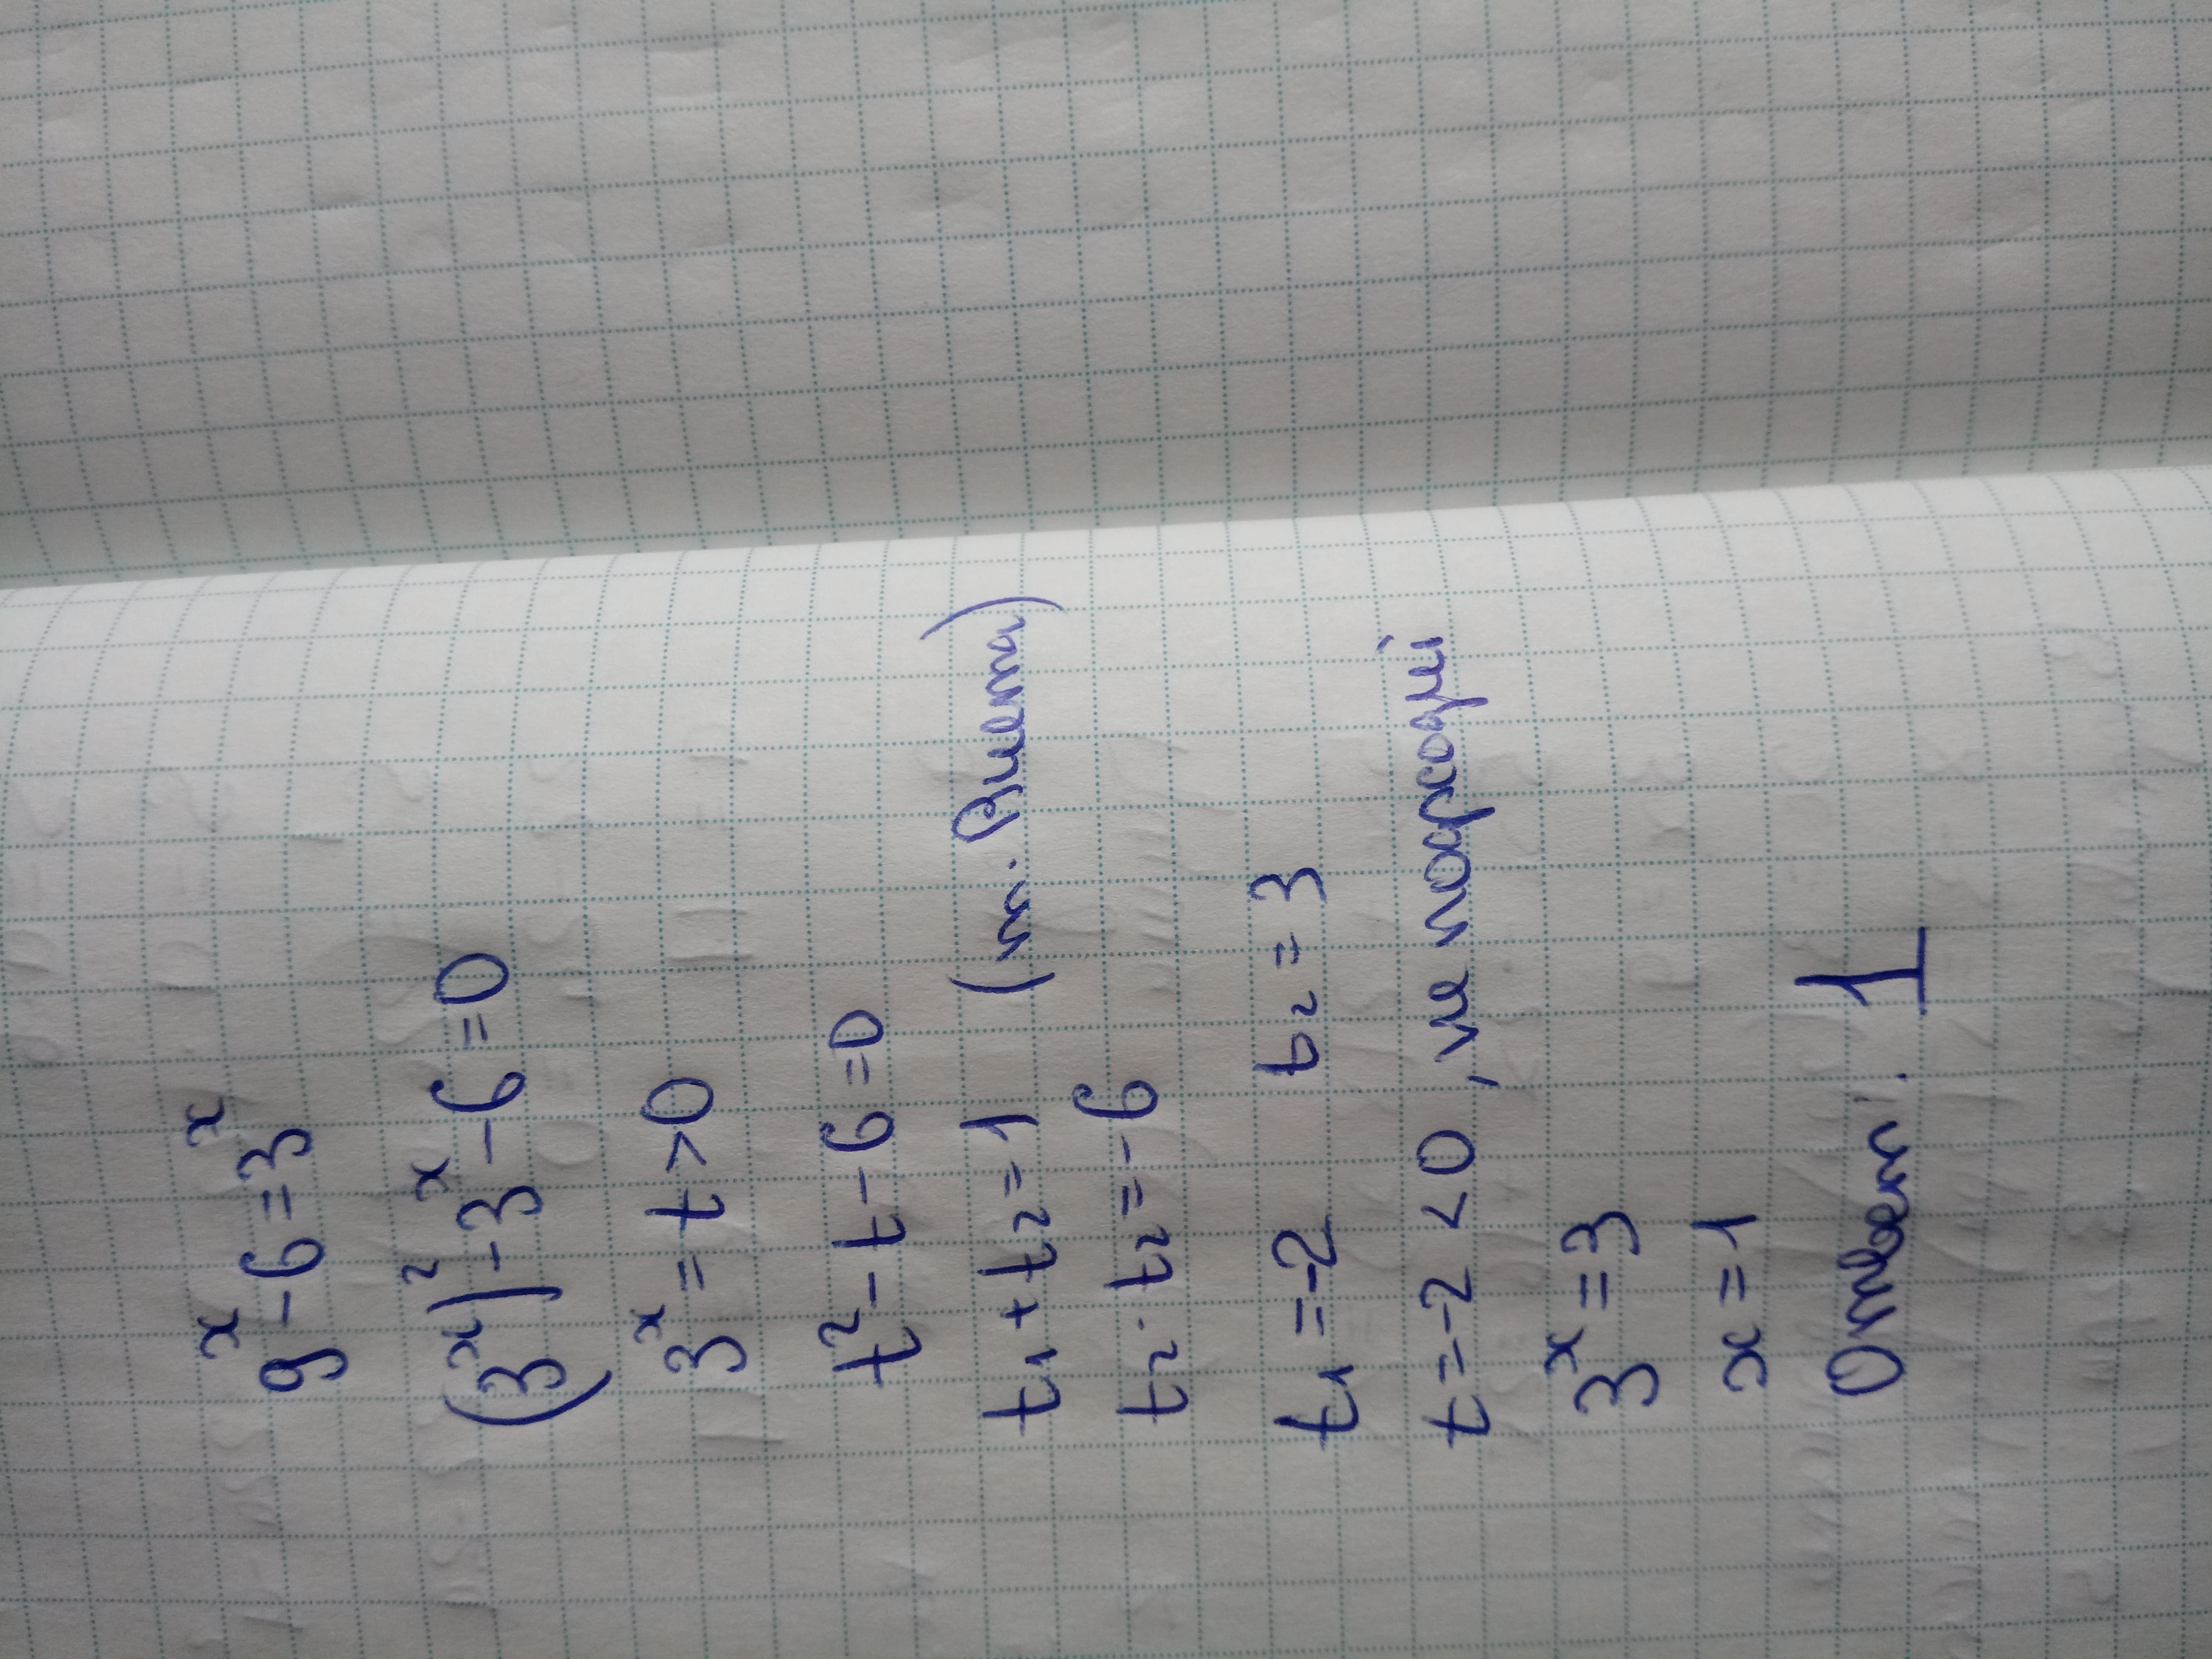 9ˣ-6=3ˣ
(3ˣ)²-3ˣ-6=0
3ˣ=t>0
t²-t-6=0
t₁+t₂=1 (т. Виета)
t₂·t₂=-6
t₁=-2 t₂=3
t=-2<0, не
3ˣ=3
x=1
Ответ: 1